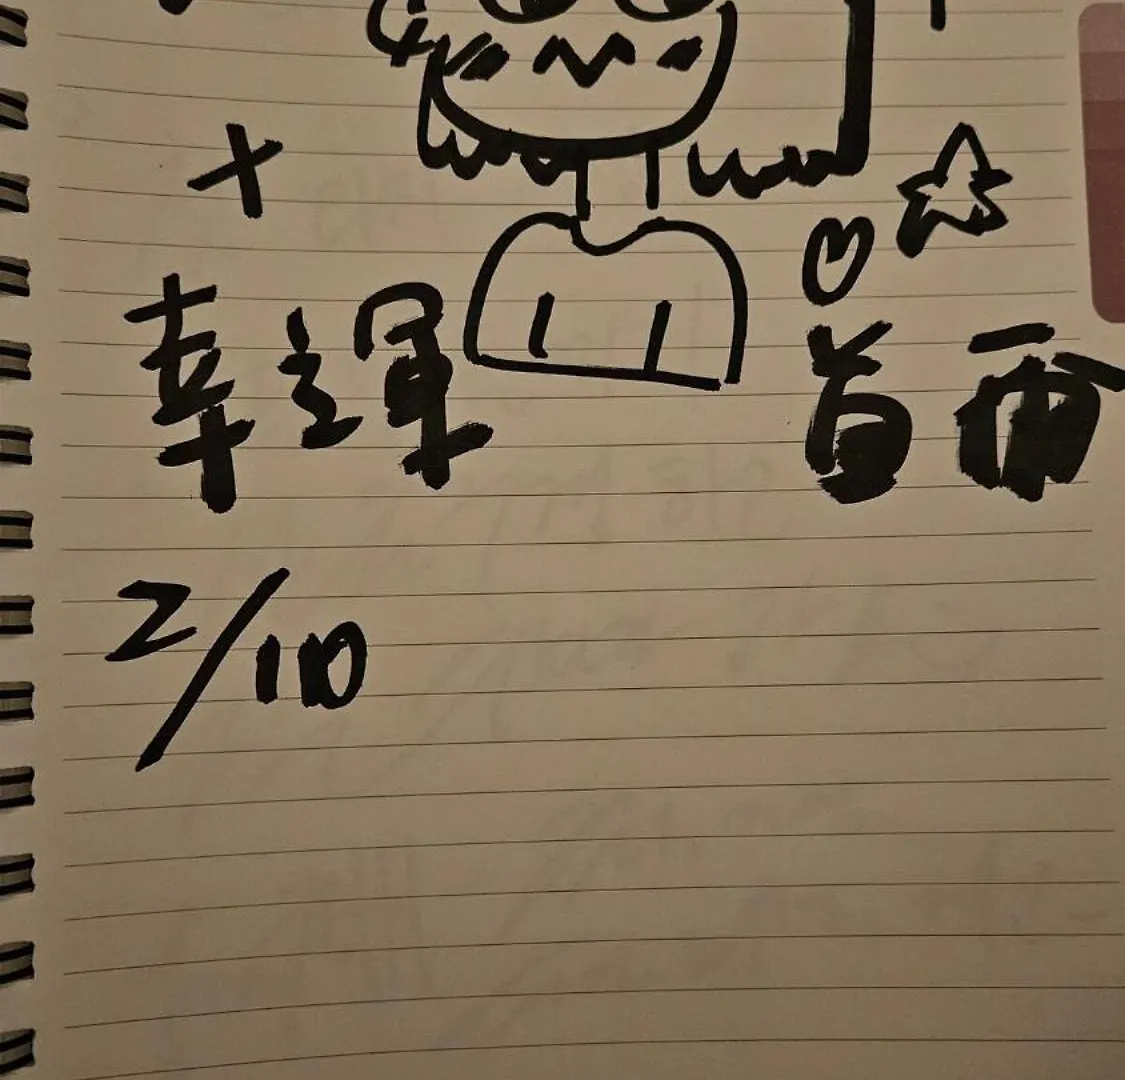 幸運 首兩
2/10